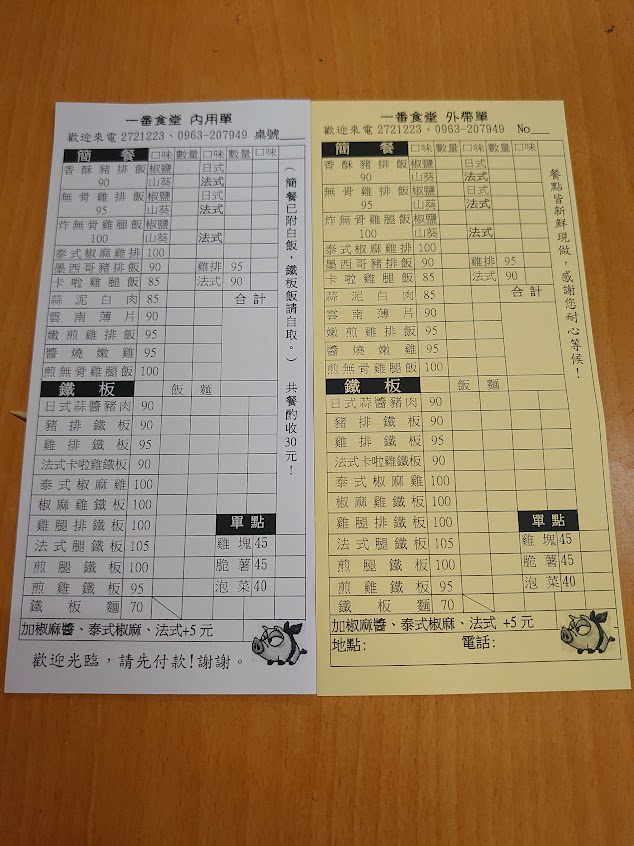 一番食堂 內用單
歡迎來電 2721223、0963-207949 桌號
簡餐 口味 數量 口味 數量 口味
香酥豬排飯 椒鹽 日式
90 山葵 法式
無骨雞排飯 椒鹽 日式
95 山葵 法式
炸無骨雞腿飯 椒鹽
100 山葵 法式
泰式椒麻雞排 100
墨西哥豬排飯 90 雞排 95
卡啦雞腿飯 85 法式 90
蒜泥白肉 85 合計
雲南薄片 90
嫩煎雞排飯 95
醬燒嫩雞 95
煎無骨雞腿飯 100
鐵板 飯 麵
日式蒜醬豬肉 90
豬排鐵板 90
雞排鐵板 95
法式卡啦雞鐵板 90
泰式椒麻雞 100
椒麻雞鐵板 100
雞腿排鐵板 100 單點
法式腿鐵板 105 雞塊 45
煎腿鐵板 100 脆薯 45
煎雞鐵板 95 泡菜 40
鐵板麵 70
加椒麻醬、泰式椒麻、法式+5元
歡迎光臨，請先付款!謝謝。
(簡餐已附白飯，鐵板飯請自取。) 共餐酌收30元!
一番食堂 外帶單
歡迎來電 2721223、0963-207949 No
簡餐 口味 數量 口味 數量 口味
香酥豬排飯 椒鹽 日式
90 山葵 法式
無骨雞排飯 椒鹽 日式
95 山葵 法式
炸無骨雞腿飯 椒鹽
100 山葵 法式
泰式椒麻雞排 100
墨西哥豬排飯 90 雞排 95
卡啦雞腿飯 85 法式 90
蒜泥白肉 85 合計
雲南薄片 90
嫩煎雞排飯 95
醬燒嫩雞 95
煎無骨雞腿飯 100
鐵板 飯 麵
日式蒜醬豬肉 90
豬排鐵板 90
雞排鐵板 95
法式卡啦雞鐵板 90
泰式椒麻雞 100
椒麻雞鐵板 100
雞腿排鐵板 100 單點
法式腿鐵板 105 雞塊 45
煎腿鐵板 100 脆薯 45
煎雞鐵板 95 泡菜 40
鐵板麵 70
加椒麻醬、泰式椒麻、法式 +5元
地點: 電話:
餐點皆新鮮現做，感謝您耐心等候!